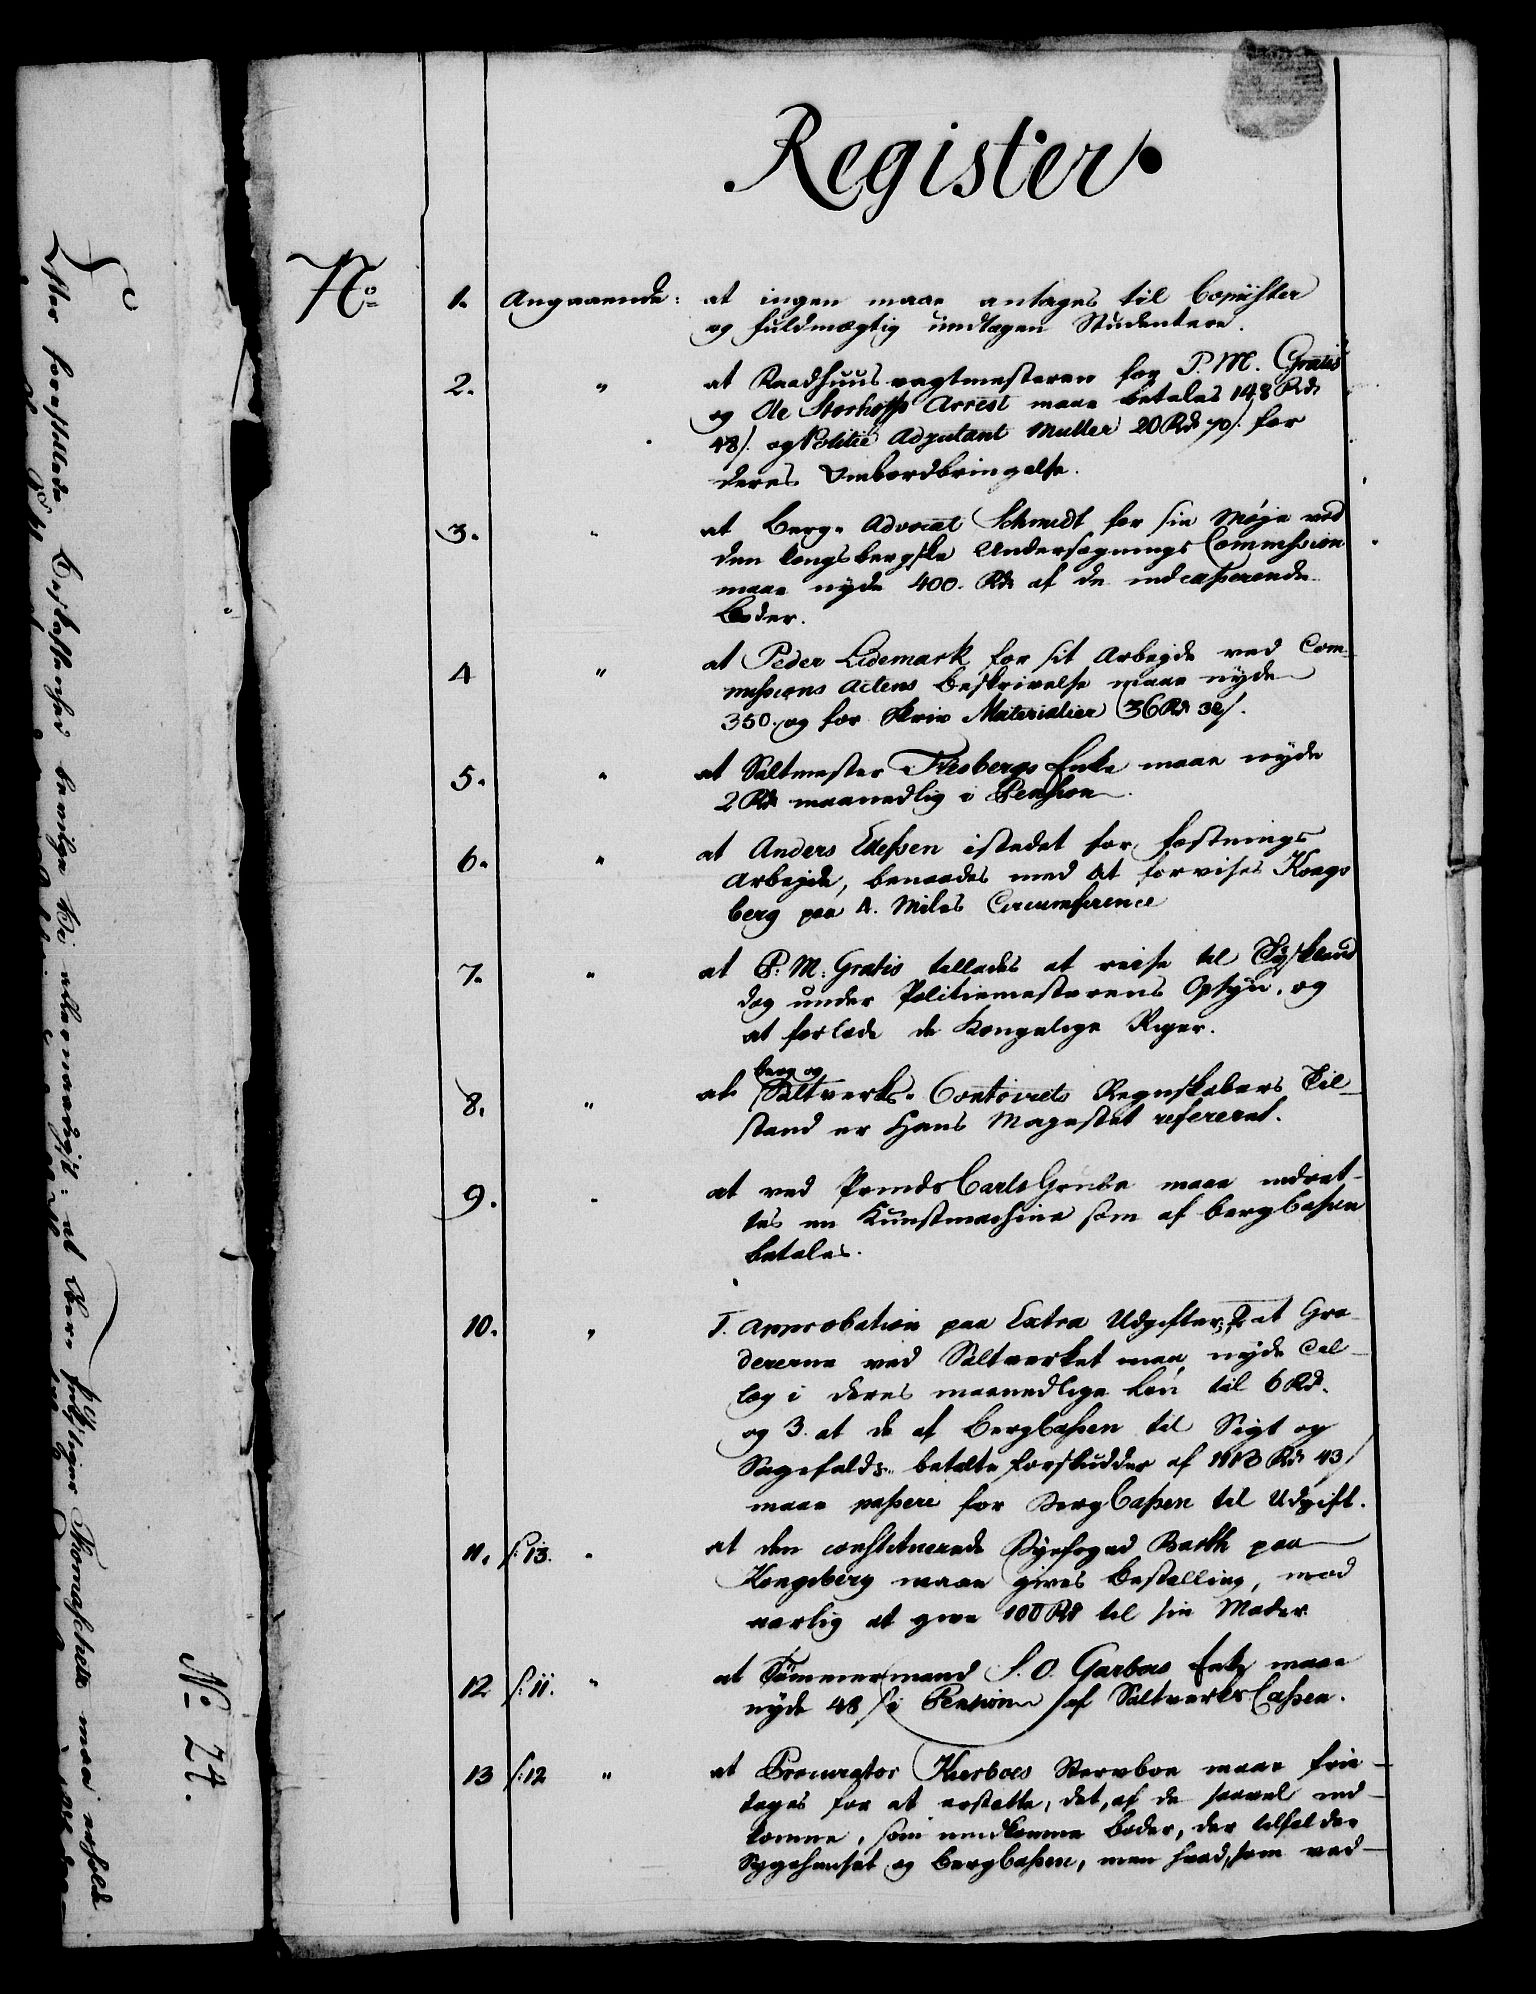 Register.
No
1. Angaaende: at ingen maae antages til Copiister
og fuldmægtig undtagen Studentere.
2. " at Raadhuus vagtmesteren for P. M. Gratis
og de Storhoffs Arrest maae betales 148 Rdr
48 s. og Politie Adjutant Muller 20 Rdr 70 s. for
deres Ombordbringelse.
3. " at Berg- Advocat Schmidt for sin Møje ved
den kongsbergske Undersøgnings Commission
maae nyde 400. Rdr af de indcasserende
Bøder.
4 " at Peder Lidemark for sit Arbejde ved Com-
missions Actens Beskrivelse maae nyde
350. og for Skriv Materialier 36 Rdr 32 s.
5. " at Sältmester Flesbergs Enke maae nyde
2 Rdr maanedlig i Pension.
6. " at Anders Ellefsen istedet for fæstnings
Arbejde, benaades med at forvises Kongs
berg paa 4. Miles Circumference
7. " at P. M. Gratis tillades at reise til Tydskland
dog under Politiemesterens Opsyn, og
at forlade de Kongelige Riger.
berg og
8. " at Sältverks- Contoirets Regnskabers Til-
stand er Hans Majestet refereret.
9. " at ved Prinds Carls Grube maae indret-
tes en Kunstmachine som af bergCassen
betales.
10. " 1. Approbation paa Extra Udgifter, 2. at Gra-
dererne ved Sältverket maa nyde Til-
læg i deres maanedlige Løn til 6 Rdr.
og 3. at de af bergCassen til Sigt og
betalte forskudder af 1113 Rdr 43 s
maae passere for bergCassen til Udgift.
11. f: 13. " at den constituerede Byefoged Barth paa
Kongsberg maae gives bestalling, mod
aarlig at give 100 Rdr til sin Moder
12 f: 11. " at Tømmermand S. O. Garboes Enke maae
nyde 48 s i Pension af Sältverks Cassen.
13 f: 12 " at Procurator Kierboes Sterboe maae frie-
tages for at erstatte, det, af de saavel ind-
komne, som uindkomne bøder, der tilfalder
Sygehuuset og bergCassen, men hvad, som ved-
Efter forestillede Beskaffenhed bevilge Vi allernaadigst: at
Thomaschek maa erholde
No 24.